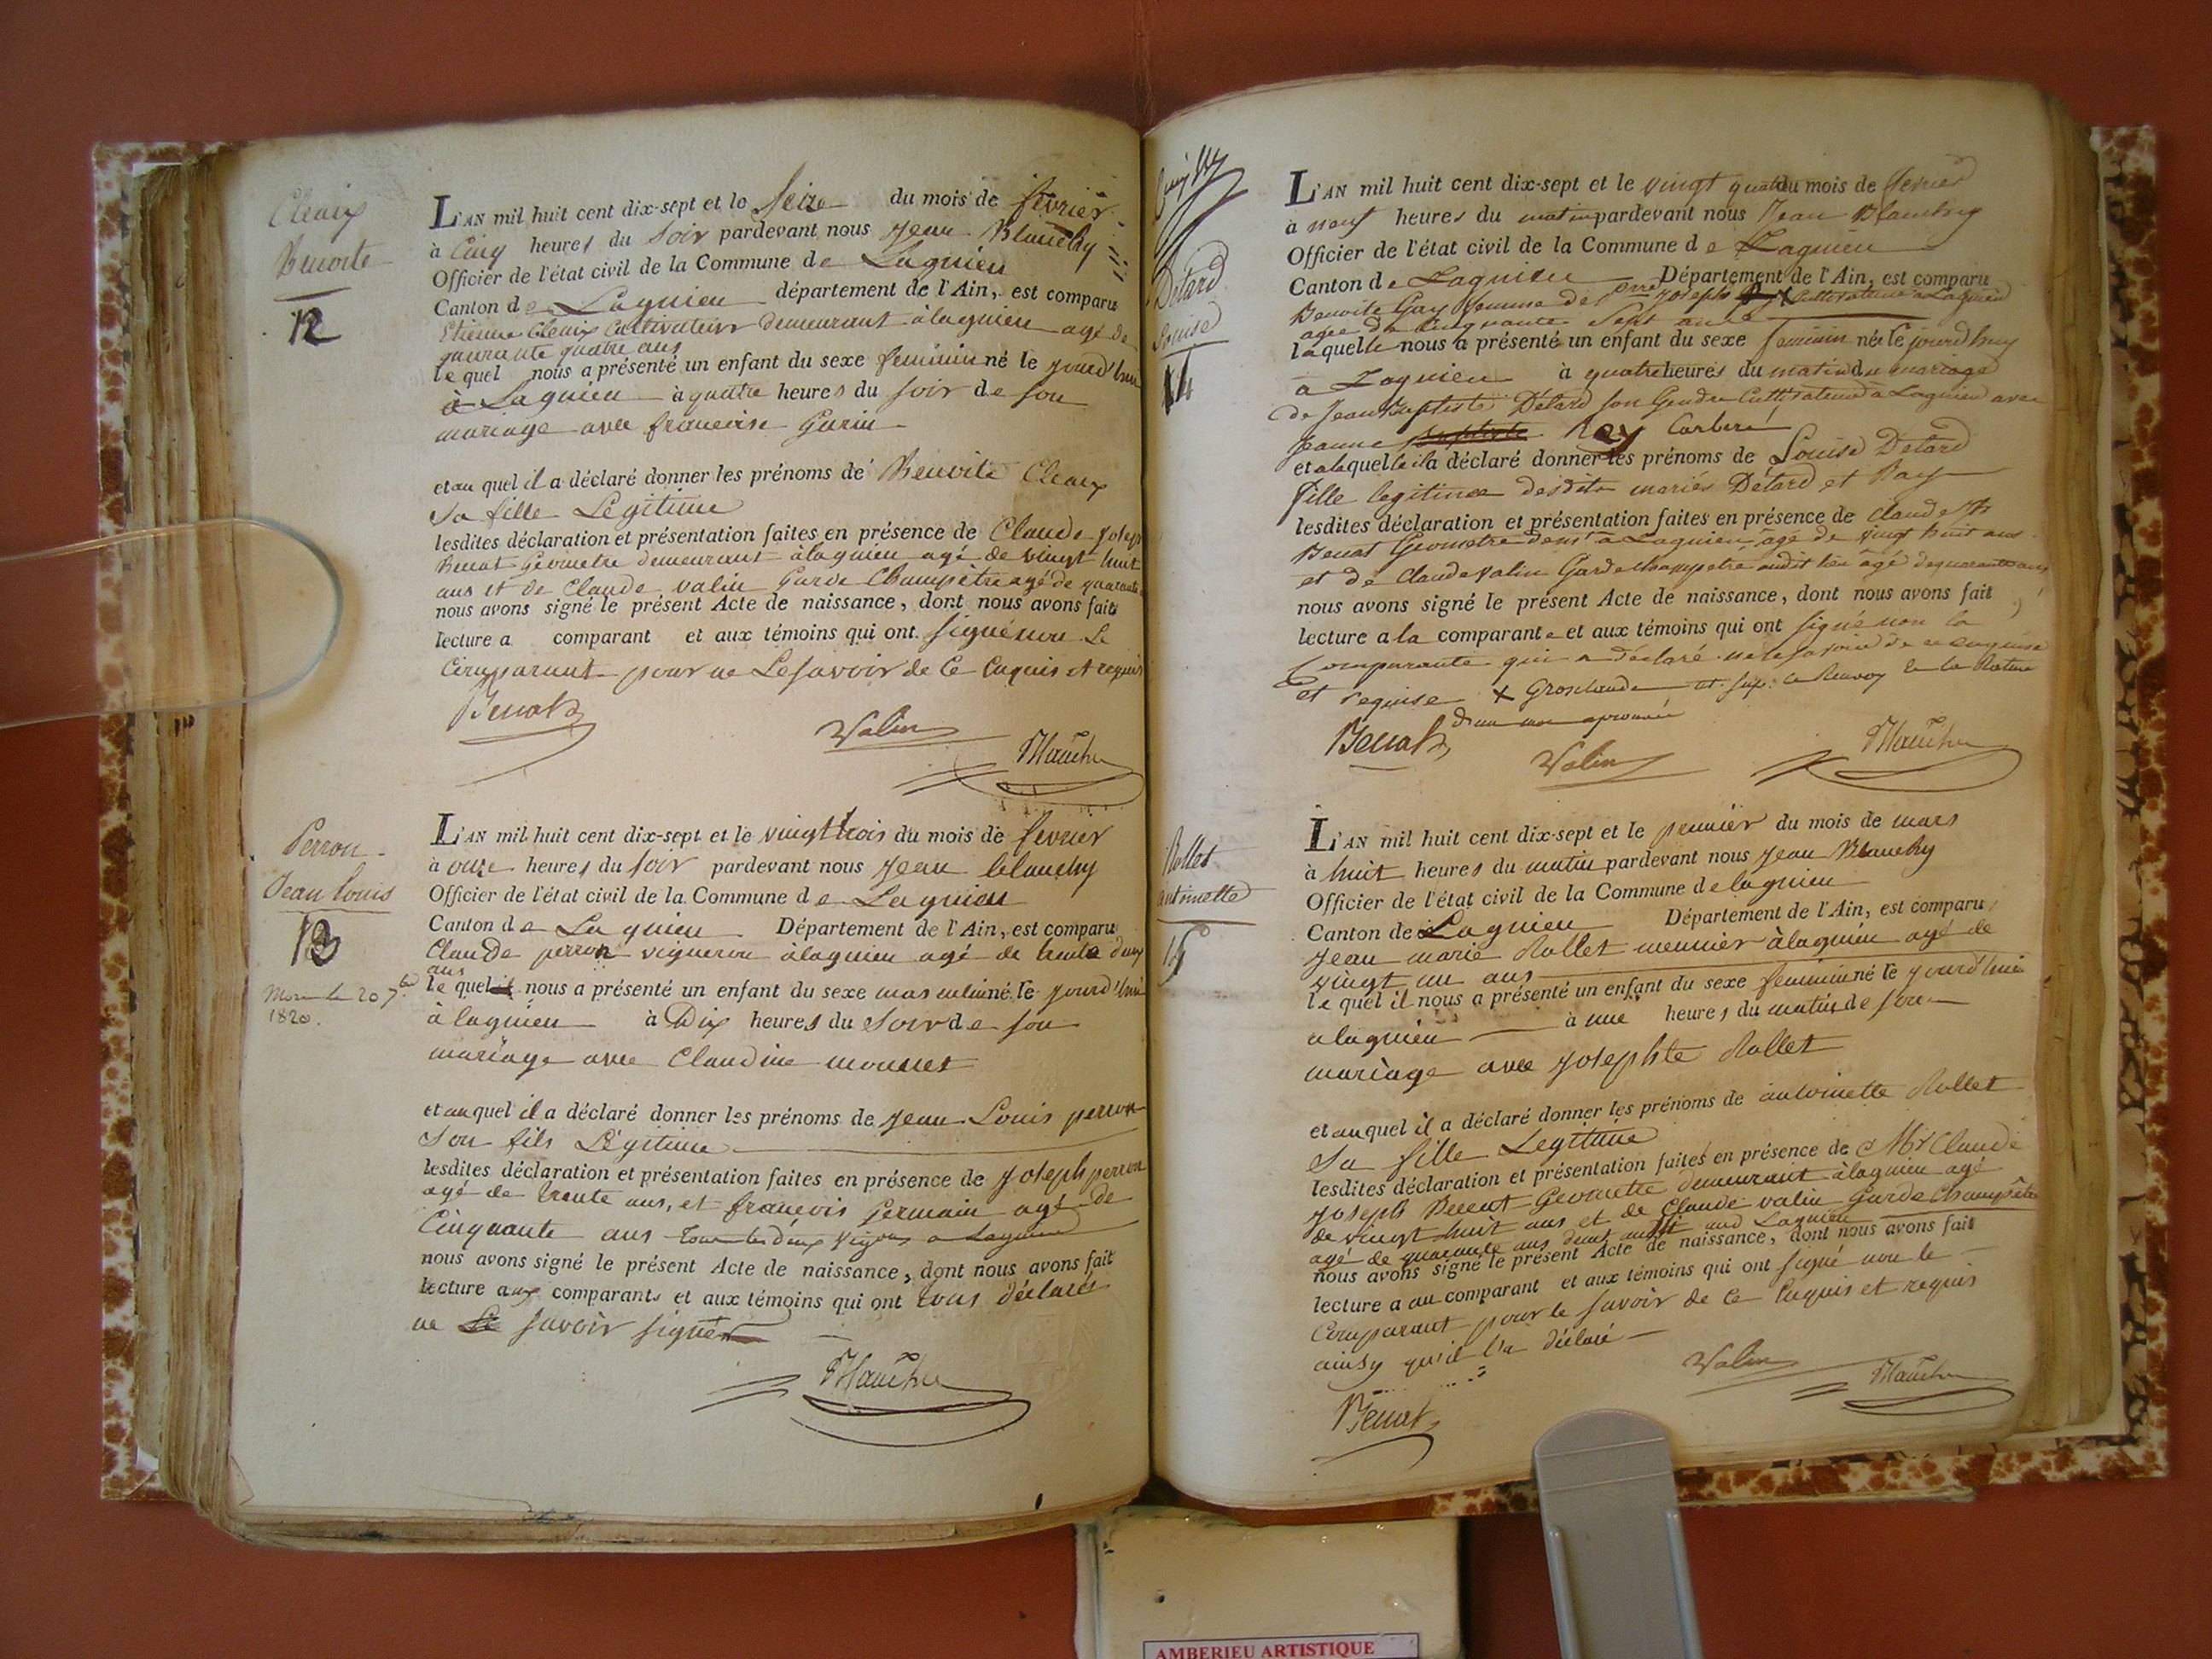 Cleaix
Benoite
12
L'AN mil huit cent dix-sept et le Seize du mois de fevrier
à Cinq heures du Soir pardevant nous Jean Blanchy
Officier de l'état civil de la Commune de Lagnieu
Canton de Lagnieu département de l'Ain, est comparu
Etienne Cleaix Cultivateur demeurant à lagnieu agé de
quarante quatre ans
lequel nous a présenté un enfant du sexe feminin né le jourd'hui
à Lagnieu à quatre heures du soir de son
mariage avec francoise Garin
et au quel il a déclaré donner les prénoms de Benoite Cleaix
Sa fille Légitime
lesdites déclaration et présentation faites en présence de Claude Joseph
Benat Géometre demeurant à lagnieu agé de vingt huit
ans et de Claude valin Garde Champêtre agé de quarante
nous avons signé le présent Acte de naissance, dont nous avons fait
lecture a comparant et aux témoins qui ont signé non Le
Comparant pour ne Le savoir de Ce Enquis et requis
Benat
Valin
Blanchy
Perron
Jean Louis
13
Mort le 20 7bre
1820.
L'AN mil huit cent dix-sept et le vingt trois du mois de fevrier
à onze heures du soir pardevant nous Jean blanchy
Officier de l'état civil de la Commune de Lagnieu
Canton de Lagnieu Département de l'Ain, est comparu
Claude perron vigneron à lagnieu agé de trente deux
ans
lequel nous a présenté un enfant du sexe masculin né le jourd'hui
à lagnieu à Dix heures du Soir de son
mariage avec Claudine mounet
et au quel il a déclaré donner les prénoms de Jean Louis perron
Son fils Légitime
lesdites déclaration et présentation faites en présence de Joseph perron
agé de trente ans, et francois Germain agé de
Cinquante ans tous les deux vignons a Lagnieu
nous avons signé le présent Acte de naissance, dont nous avons fait
lecture aux comparants et aux témoins qui ont tous déclaré
ne Le savoir signer
Blanchy
Détard
Louise
14
L'AN mil huit cent dix-sept et le vingt quatre du mois de fevrier
à neuf heures du matin pardevant nous Jean Blanchy
Officier de l'état civil de la Commune de Lagnieu
Canton de Lagnieu Département de l'Ain, est comparu
Benoite Gay femme de Joseph Rey Cultivateur a Lagnieu
agée de Cinquante Sept ans
laquelle nous a présenté un enfant du sexe feminin née le jourdhuy
a Lagnieu à quatre heures du matin du mariage
de Jean Baptiste Détard son Gendre Cultivateur à Lagnieu avec
Jeanne Baptiste Rey
et a laquelle il a déclaré donner les prénoms de Louise Detard
fille legitime desdits mariés Détard et Ray
lesdites déclaration et présentation faites en présence de Claude Jh
Benat Géometre demt a Lagnieu agé de vingt huit ans
et de Claude valin Garde champetre audit lieu âgé de quarante ans
nous avons signé le présent Acte de naissance, dont nous avons fait
lecture a la comparante et aux témoins qui ont signé non la
Comparante qui a déclaré ne le savoir de ce enquise
et requise X Grosclaude ce Renvoy et la Rature
d'un mot aprouvée
Benat
Valin
Blanchy
Rollet
antoinette
15
L'AN mil huit cent dix-sept et le premier du mois de mars
à huit heures du matin pardevant nous Jean Blanchy
Officier de l'état civil de la Commune de lagnieu
Canton de Lagnieu Département de l'Ain, est comparu
Jean marie Rollet meunier à lagnieu agé de
vingt un ans
lequel il nous a présenté un enfant du sexe feminin né le jourd'hui
a lagnieu à une heures du matin de son
mariage avec Josephte Rollet
et au quel il a déclaré donner les prénoms de antoinette Rollet
Sa fille Legitime
lesdites déclaration et présentation faites en présence de Mr Claude
Joseph Benat Geometre demeurant à lagnieu agé
de vingt huit ans et de Claude valin Garde Champêtre
agé de quarante ans demt aud Lagnieu
nous avons signé le présent Acte de naissance, dont nous avons fait
lecture a au comparant et aux témoins qui ont signé non le
Comparant pour le savoir de Ce Enquis et requis
ainsy qu'il l'a déclaré
Valin
Blanchy
Benat
AMBERIEU ARTISTIQUE